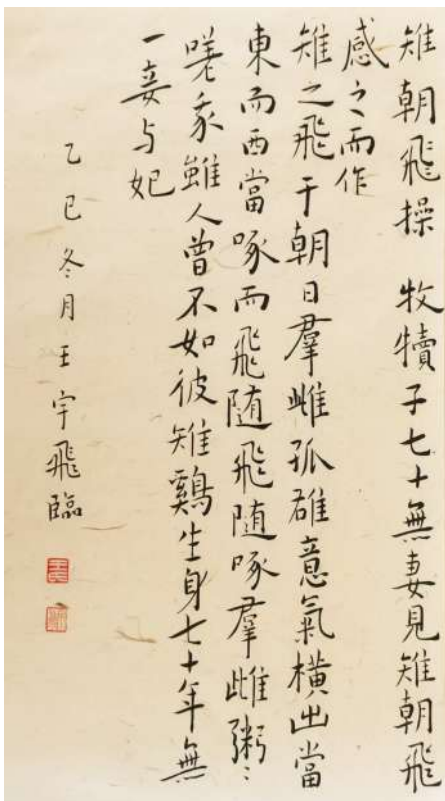 雉朝飛操 牧犢子七十無妻見雉朝飛
感之而作
雉之飛于朝日羣雌孤雄意氣橫出當
東而西當啄而飛随飛随啄羣雌粥〻
嗟我雖人曾不如彼雉鷄生身七十年無
一妾与妃
乙巳冬月王宇飛臨